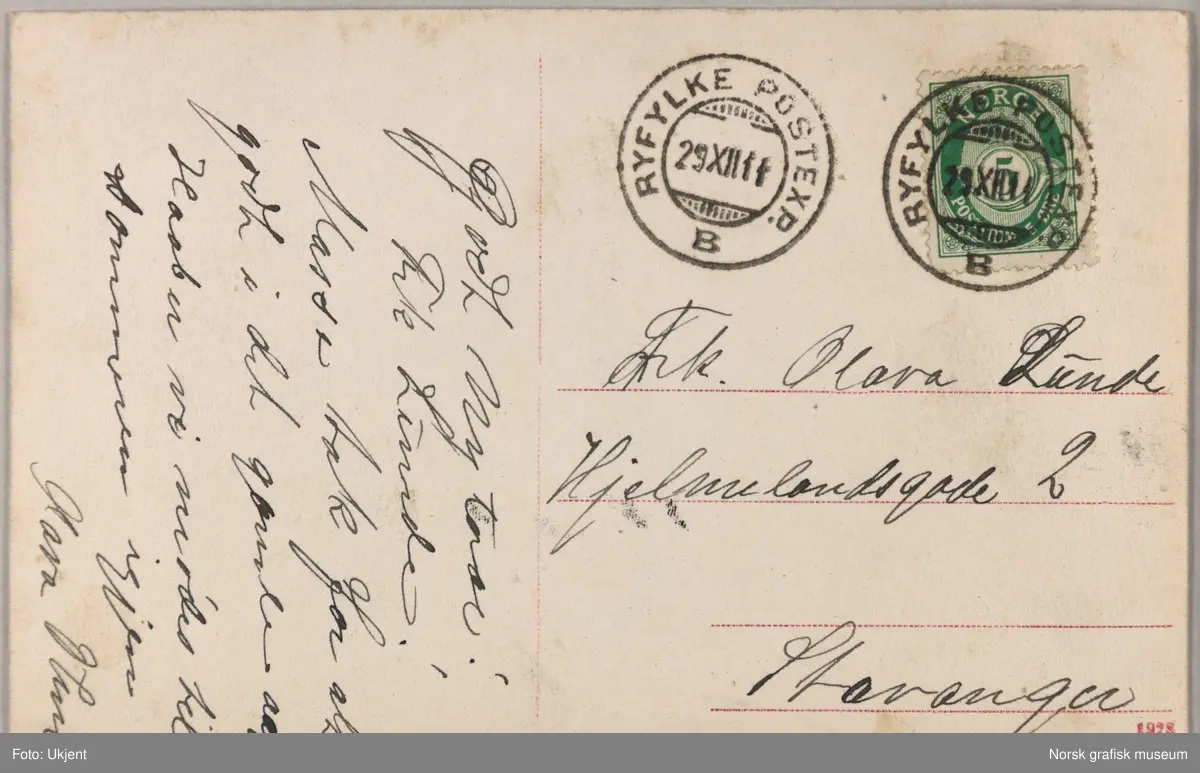 Godt Nyttaar!
Frk Lunde!
Masse tak for alt
godt i det gamle aar
Haaber vi mødes til
sommeren igjen
Klara
RYFYLKE POSTEXP.
29 XII 11
B
NORGE
5
RYFYLKE POSTEXP.
29 XII 11
B
Frk. Olava Lunde
Hjelmelandsgade 2
Stavanger
1928
Foto: Ukjent
Norsk grafisk museum